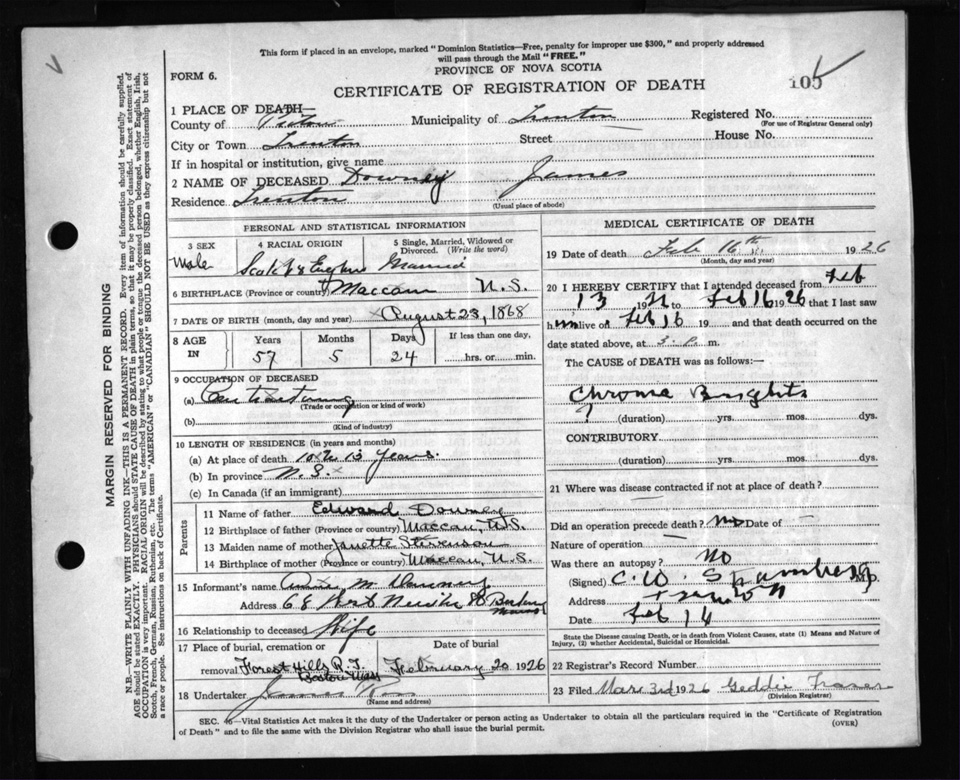 This form if placed in an envelope, marked "Dominion Statistics—Free, penalty for improper use $300," and properly addressed
will pass through the Mail "FREE."
PROVINCE OF NOVA SCOTIA
FORM 6.
105
CERTIFICATE OF REGISTRATION OF DEATH
1 PLACE OF DEATH—
County of Pictou Municipality of Trenton Registered No.
(For use of Registrar General only)
City or Town Trenton Street House No.
If in hospital or institution, give name
2 NAME OF DECEASED Downey James
Residence Trenton (Usual place of abode)
PERSONAL AND STATISTICAL INFORMATION
3 SEX 4 RACIAL ORIGIN 5 Single, Married, Widowed or Divorced. (Write the word)
Male Scotch & English Married
6 BIRTHPLACE (Province or country) Maccan N.S.
7 DATE OF BIRTH (month, day and year) August 23, 1868
8 AGE IN Years Months Days If less than one day,
57 5 24 hrs. or min.
9 OCCUPATION OF DECEASED
(a)
(Trade or occupation or kind of work)
(b)
(Kind of industry)
10 LENGTH OF RESIDENCE (in years and months)
(a) At place of death 10 to 13 years.
(b) In province N.S.
(c) In Canada (if an immigrant)
Parents
11 Name of father Edward Downey
12 Birthplace of father (Province or country) Maccan, N.S.
13 Maiden name of mother Janette Stevenson
14 Birthplace of mother (Province or country) Maccan, N.S.
15 Informant's name M. Downey
Address 68 Boston
16 Relationship to deceased Wife
17 Place of burial, cremation or Date of burial
removal Forest Hills Boston Mass February 20 1926
18 Undertaker James
(Name and address)
MEDICAL CERTIFICATE OF DEATH
19 Date of death Feb 16th 1926
(Month, day and year)
20 I HEREBY CERTIFY that I attended deceased from Feb
13 19 to Feb 16 1926 that I last saw
him alive on Feb 16 19 and that death occurred on the
date stated above, at 3. P. m.
The CAUSE of DEATH was as follows:—
Chronic Brights
? (duration) yrs. mos. dys.
CONTRIBUTORY
(duration) yrs. mos. dys.
21 Where was disease contracted if not at place of death?
Did an operation precede death? No Date of —
Nature of operation —
Was there an autopsy? No
(Signed) C. W. M.D.
Address Trenton
Date Feb 16
State the Disease causing Death, or in death from Violent Causes, state (1) Means and Nature
of Injury, (2) whether Accidental, Suicidal or Homicidal.
22 Registrar's Record Number
23 Filed Mar 3rd 1926 Geddie Fraser
(Division Registrar)
SEC. 16—Vital Statistics Act makes it the duty of the Undertaker or person acting as Undertaker to obtain all the particulars required in the "Certificate of Registration
of Death" and to file the same with the Division Registrar who shall issue the burial permit.
(OVER)
MARGIN RESERVED FOR BINDING
N.B.—WRITE PLAINLY WITH UNFADING INK—THIS IS A PERMANENT RECORD. Every item of information should be carefully supplied.
AGE should be stated EXACTLY. PHYSICIANS should STATE CAUSE OF DEATH in plain terms, so that it may be properly classified. Exact statement of
OCCUPATION is very important. RACIAL ORIGIN will be described by stating to what people or tongue the deceased person belonged, whether English, Irish,
Scotch, French, German, Russian, Ruthenian, etc. The terms "AMERICAN" or "CANADIAN" SHOULD NOT BE USED as they express citizenship but not
a race or people. See instructions on back of Certificate.